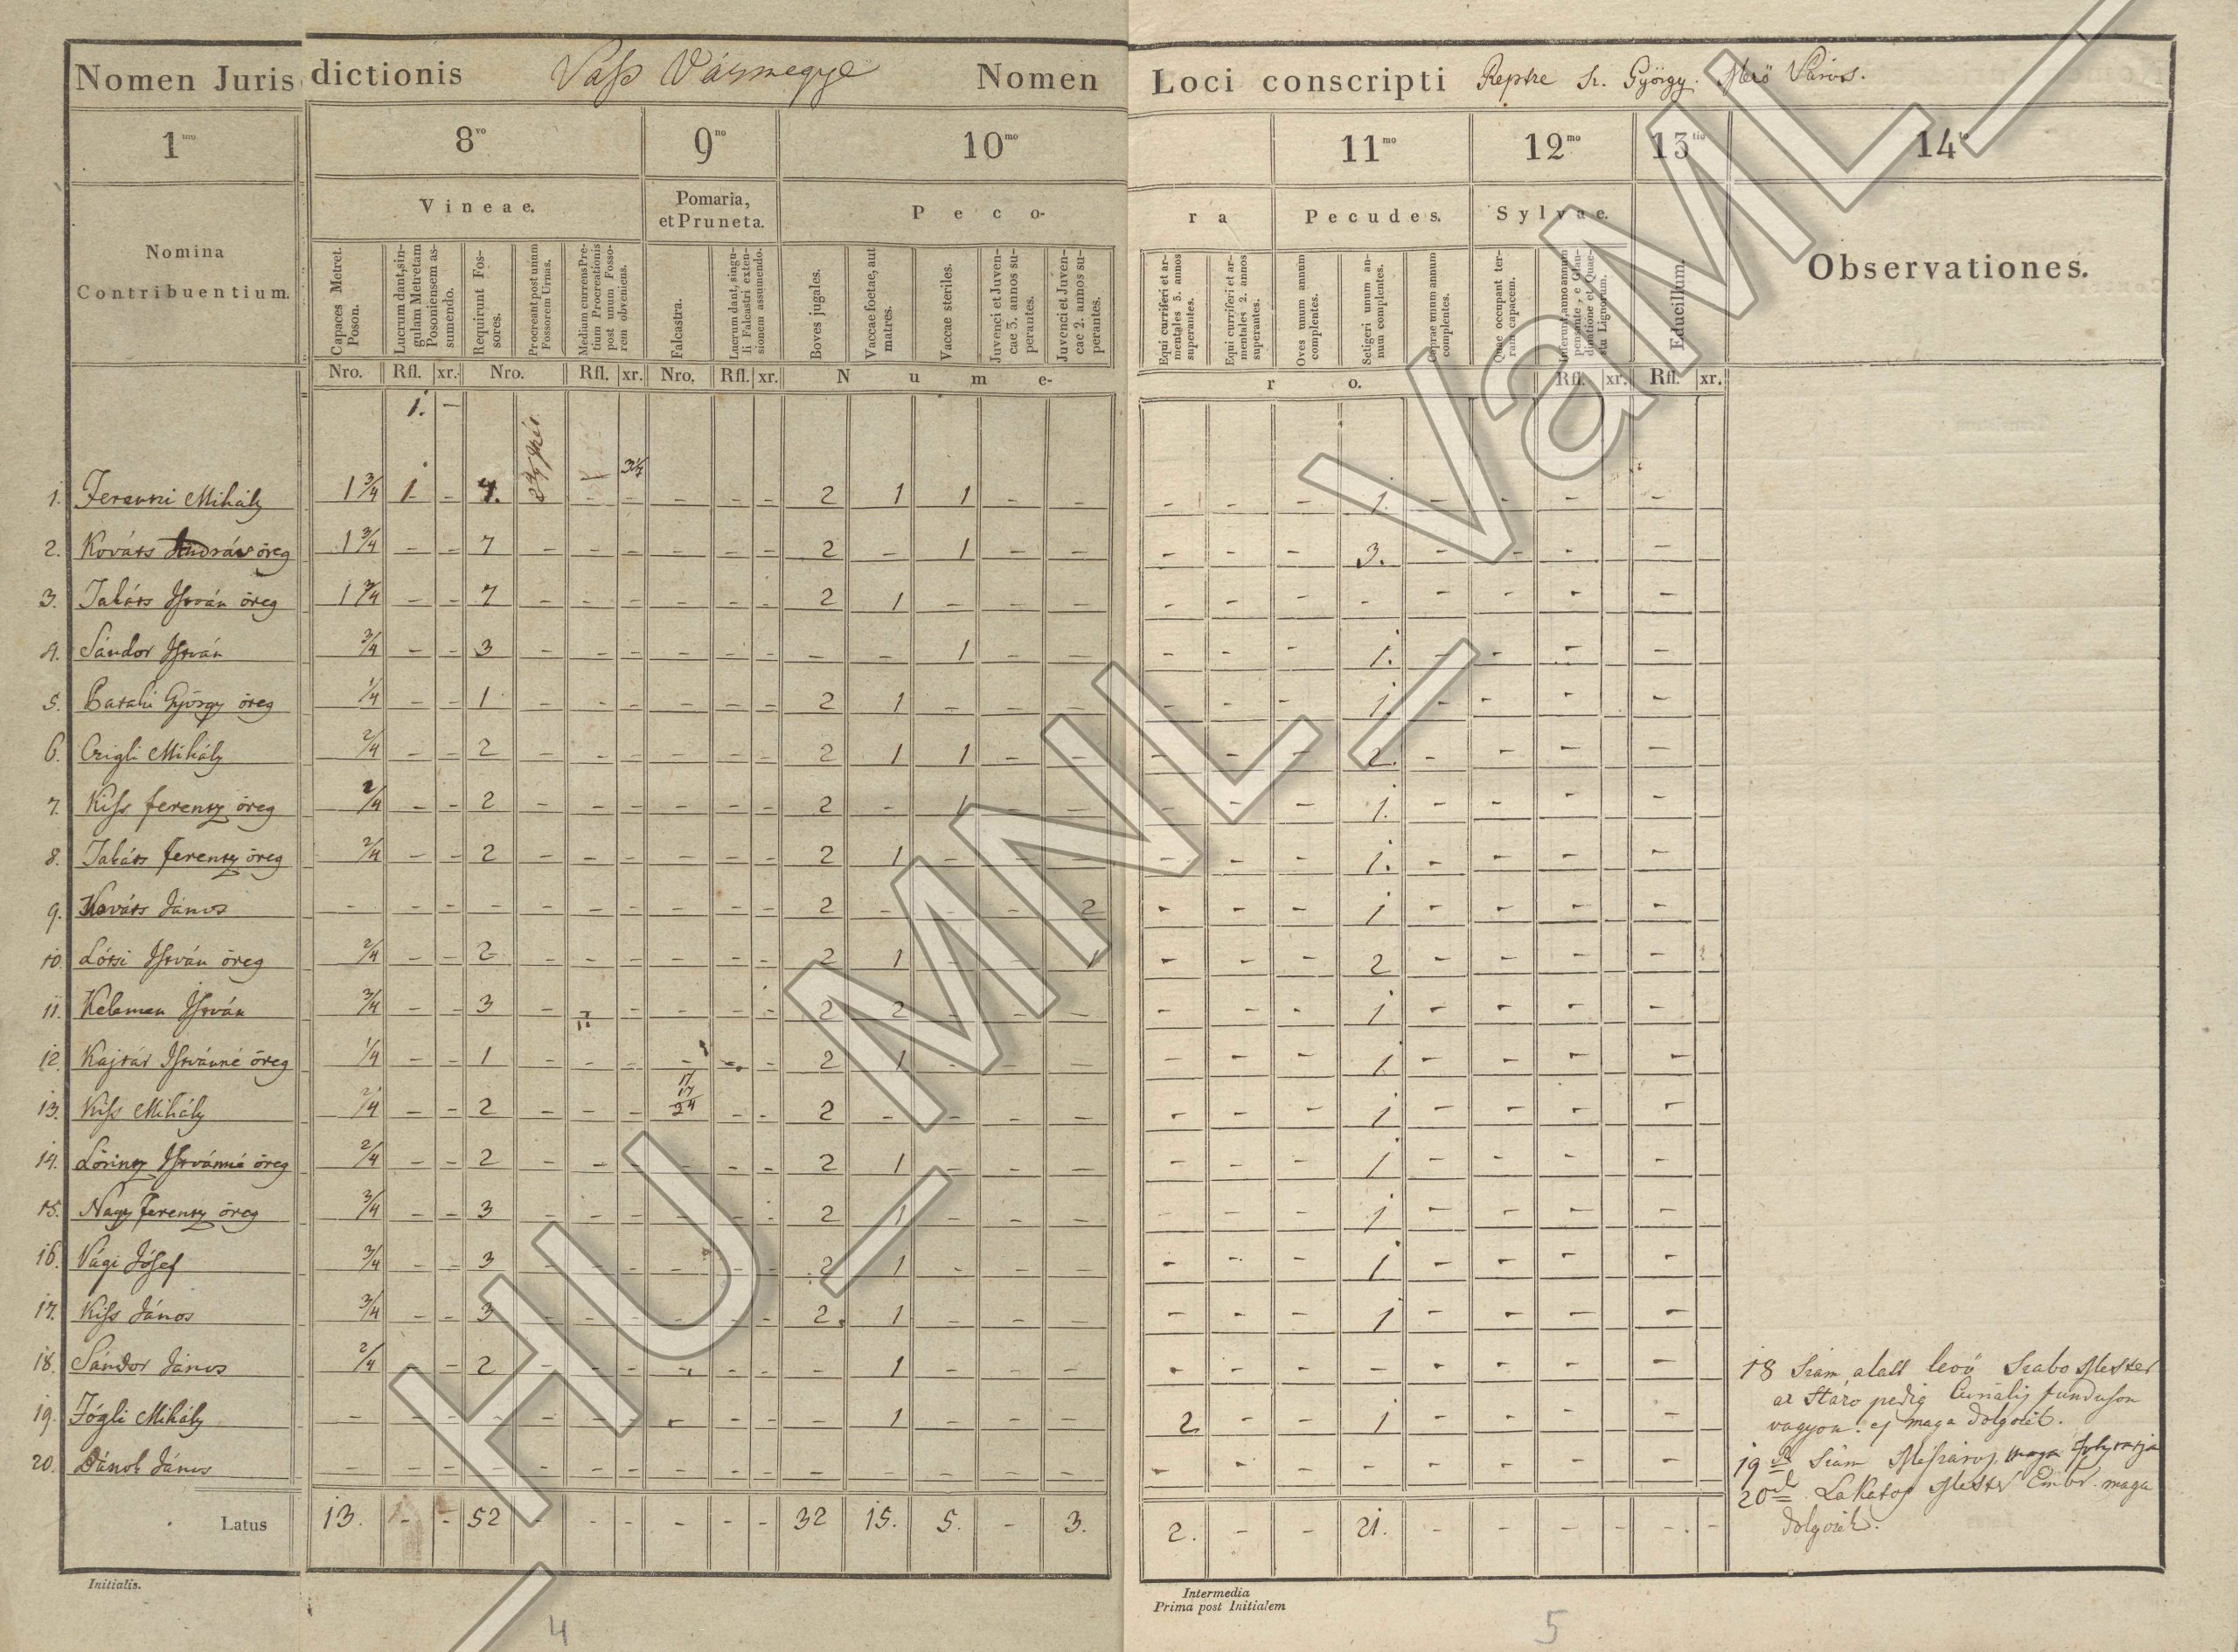 Nomen Jurisdictionis Vass Vármegye Nomen Loci conscripti Reptze Sz. György Mező Város.
1mo 8vo 9no 10mo 11mo 12mo 13tio 14to
Nomina Contribuentium. Vineae. Pomaria, et Pruneta. Pecora Pecudes. Sylvae. Educillum. Observationes.
Capaces Metret. Poson.
Lucrum dant, singulam Metretam Posoniensem assumendo.
Requirunt Fossores.
Procreant post unum Fossorem Urnas.
Medium currens Pretium Procreationis post unum Fossorem obveniens.
Falcastra.
Lucrum dant, singuli Falcastri extensionem assumendo.
Boves jugales.
Vaccae foetae, aut matres.
Vaccae steriles.
Juvenci et Juvencae 3. annos superantes.
Juvenci et Juvencae 2. annos superantes.
Equi curriferi et armentales 3. annos superantes.
Equi curriferi et armentales 2. annos superantes.
Oves unum annum complentes.
Setigeri unum annum complentes.
Caprae unum annum complentes.
Quae occupant terrain capacem.
Inferunt, anno annum pensante, e Glandinatione et Quaestu Lignorum.
Nro. Rfl. xr. Nro. Rfl. xr. Nro. Rfl. xr. Nume- ro. Rfl. xr. Rfl. xr.
1. –
1. Mihály 1 3/4 1 – 7. – – – – – – 2 1 1 – – – – – 1. – – – –
2. Kováts András öreg 1 3/4 – – 7 – – – – – – 2 – 1 – – – – – 3. – – – –
3. Takáts István öreg 1 3/4 – – 7 – – – – – – 2 1 – – – – – – – – – – –
4. Sándor István 3/4 – – 3 – – – – – – – – 1 – – – – – 1. – – – –
5. György öreg 1/4 – – 1 – – – – – – 2 1 – – – – – – 1. – – – –
6. Czigli Mihály 2/4 – – 2 – – – – – – 2 1 1 – – – – – 2. – – – –
7. Kiss ferentz öreg 2/4 – – 2 – – – – – – 2 – 1 – – – – – 1. – – – –
8. Takáts ferentz öreg 2/4 – – 2 – – – – – – 2 1 – – – – – – 1. – – – –
9. Kováts János – – – – – – – – – – 2 – – – 2 – – – 1 – – – –
10. Lótsi István öreg 2/4 – – 2 – – – – – – 2 1 – – 1 – – – 2 – – – –
11. Kelemen István 3/4 – – 3 – – – – – – 2 2 – – – – – – 1 – – – –
12. Kajtár Istvánné öreg 1/4 – – 1 – – – – – – 2 1 – – – – – – 1 – – – –
13. Kiss Mihály 2/4 – – 2 – – – 17/24 – – 2 – – – – – – – 1 – – – –
14. Lörintz Istvánné öreg 2/4 – – 2 – – – – – – 2 1 – – – – – – 1 – – – –
15. Nagy ferentz öreg 3/4 – – 3 – – – – – – 2 1 – – – – – – 1 – – – –
16. Vági Jósef 3/4 – – 3 – – – – – – 2 1 – – – – – – 1 – – – –
17. Kiss János 3/4 – – 3 – – – – – – 2. 1 – – – – – – 1 – – – –
18. Sándor János 2/4 – – 2 – – – – – – – 1 – – – – – – – – – – –
19. Fógli Mihály – – – – – – – – – – – 1 – – – 2 – – 1 – – – –
20. János – – – – – – – – – – – – – – – – – – – – – – –
18 Szám alatt levö Szabo Mester
az Stáro pedig Curialis funduson
vagyon. es maga dolgozik.
19 Szám Mészáros, maga folytatja
20ik Lakatos Mester Ember. maga
dolgozik.
Latus 13. – – 52 – – – – – – 32 15. 5. – 3. 2. – – 21. – – – – – –
Initialis.
Intermedia
Prima post Initialem
4
5
HU_MNL_VaML_